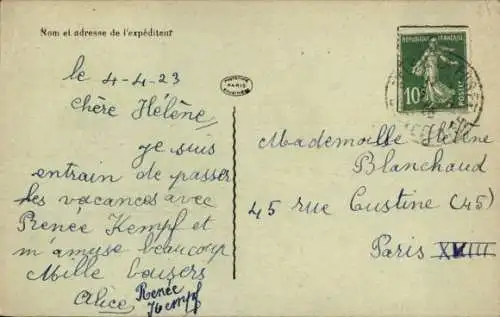 Nom et adresse de l'expéditeur
le 4-4-23
chère Hélène,
je suis
entrain de passer
les vacances avec
Renée Kempf et
m'amuse beaucoup
Mille baisers
Alice Renée
Kempf
PARIS
REPUBLIQUE FRANÇAISE
10
POSTES
Mademoiselle Hélène
Blanchaud
45 rue Custine (45)
Paris XVIII